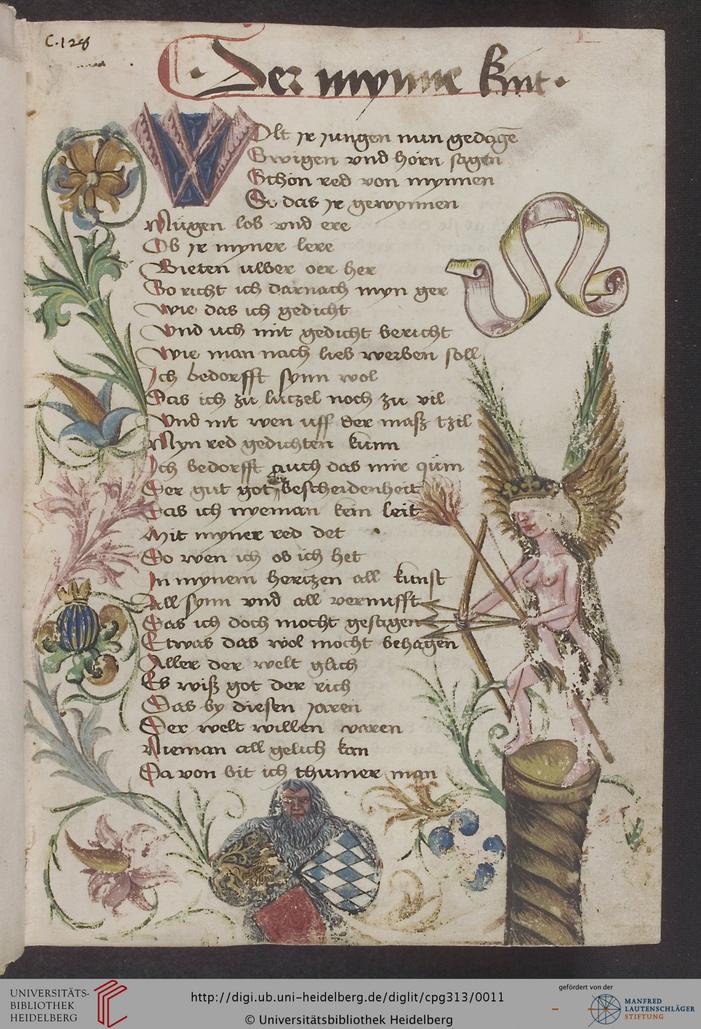 C. 128
Der mynne kint.
Wolt jr jungen nun gedagē
Swigen vnd horn sagen
Schon red von mynnen
So das jr gewynnen
Mügen lob vnd ere
Ob jr myner lere
Bieten ulwer oer her
So richt ich darnach myn ger
Wie das ich gedicht
Vnd uch mit gedicht bericht
Wie man nach lieb werben soll
Ich bedorfft synn wol
Das ich zu lutzel noch zu vil
Vnd mit wen uff der masz tzil
Myn red gedichten kunn
Ich bedorfft auch das mir qum
Der gut got bescheidenheit
Das ich nyeman kein leit
Mit myner red det
So wen ich ob ich het
In mynem hertzen all kunst
All synn vnd all vernufft
Das ich doch mocht gesagen
Etwas das wol mocht behagen
Aller der welt glich
Es wisz got der rich
Das by diesen joren
Der welt willen varen
Nieman all gelich kan
Da von bit ich thumer man
UNIVERSITÄTS-
BIBLIOTHEK
HEIDELBERG
http://digi.ub.uni-heidelberg.de/diglit/cpg313/0011
© Universitätsbibliothek Heidelberg
gefördert von der
MANFRED
LAUTENSCHLÄGER
STIFTUNG